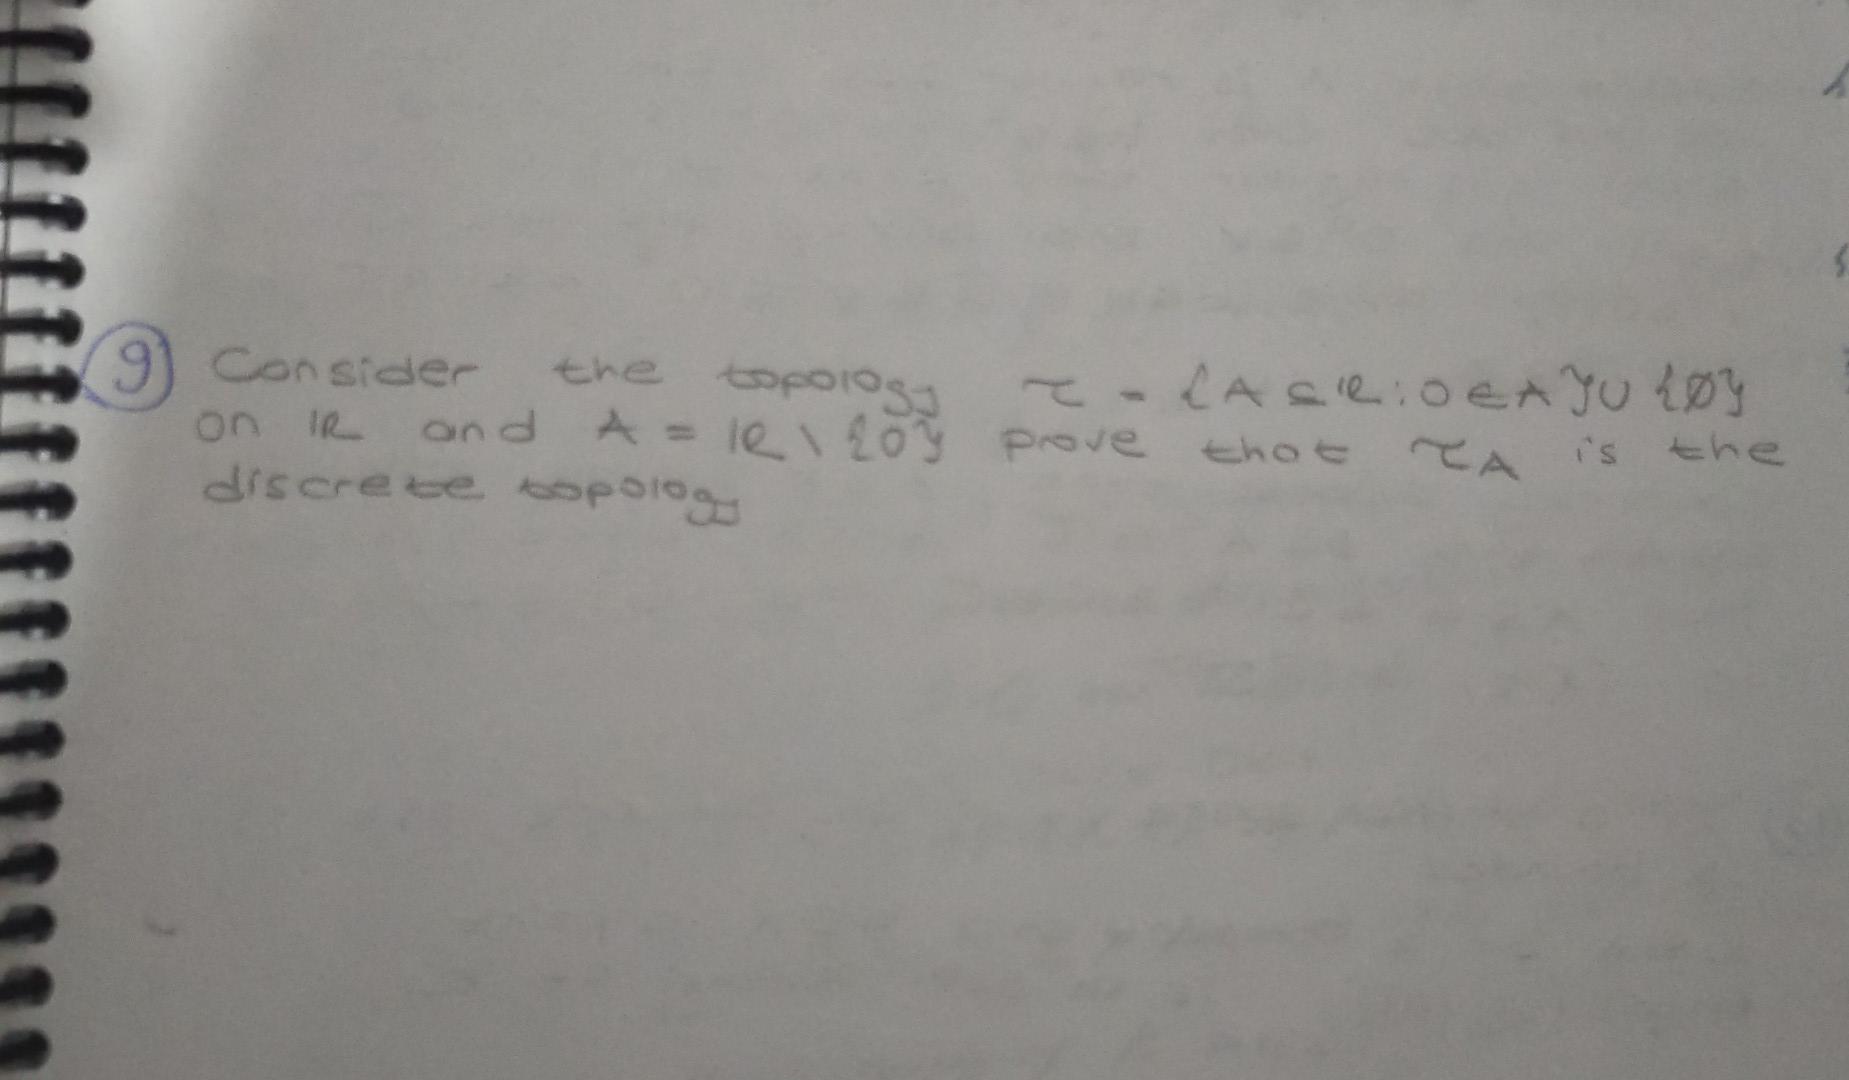 9) Consider the topology τ = {A ⊆ ℝ : 0 ∈ A} ∪ {∅}
on ℝ and A = ℝ \ {0} prove that τA is the
discrete topology